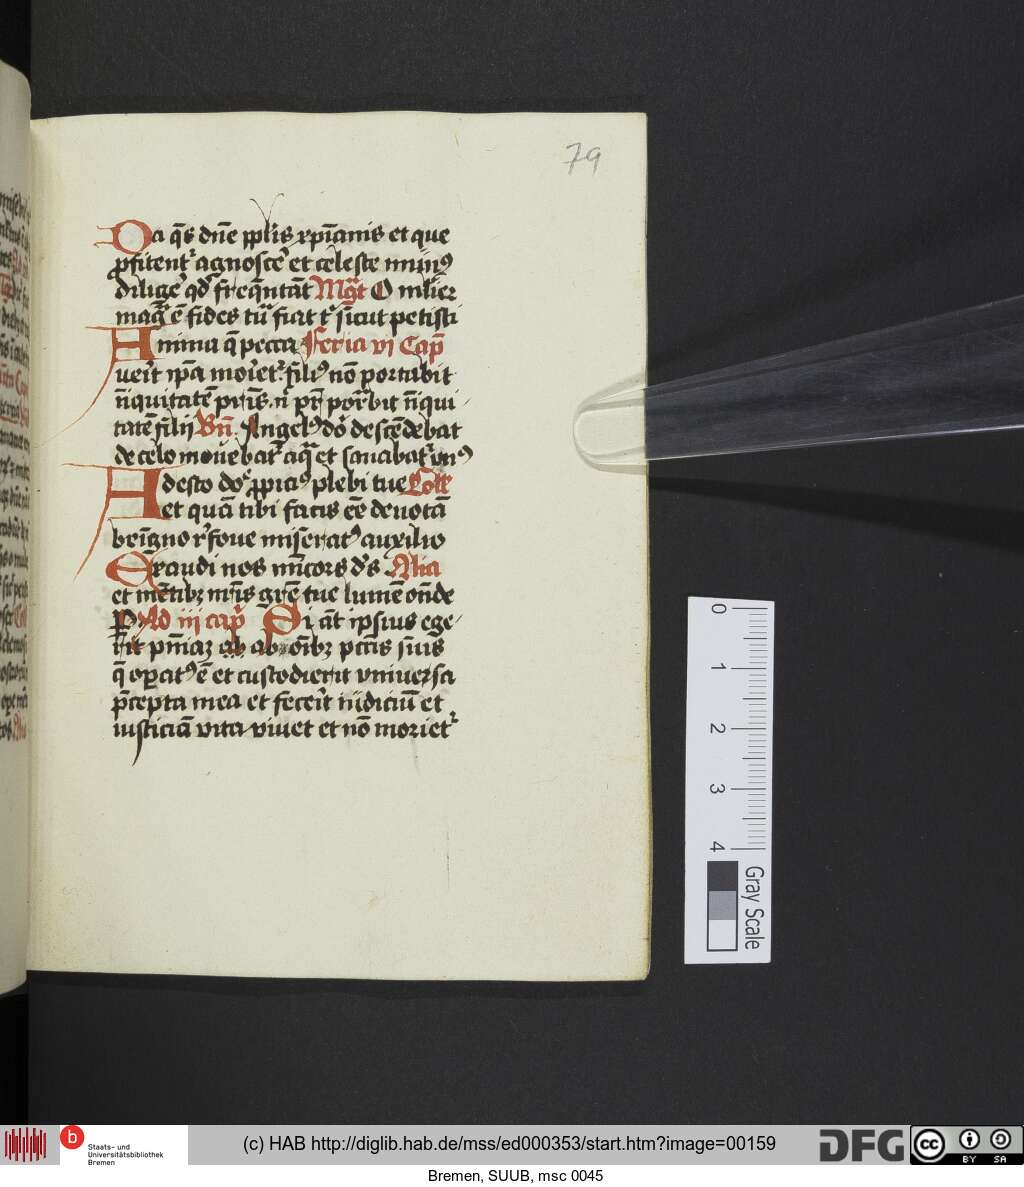 79
Da q̄s dn̄e pplīs xp̄ianis et que
ꝓfitentʳ agnosce et celeste munꝰ
dilige qd freq̄ntāt Mḡt O mulier
mag̃ ē fides tua fiat tʳ sicut petisti
Anima q̄ pecca Feria vi Cap̄
uerit ip̄a morietʳ filiꝰ nō portabit
iniquitatē pr̄is n̄ pr̄ portbit iniqui
tatē filii Bn̄ Angelꝰ dō descēdebat
de celo mouebatʳ aq̄ et sanabatʳ vnꝰ
Adesto do ꝓpiciꝰ plebi tue Colla
et quā tibi facis eē deuotā
benigno rʳfoue miseratꝰ auxilio
Exaudi nos mīcors ds Alia
et mētibꝫ nr̄is gr̄e tue lumē ostēde
Pʳ Ad iij cap̄ Si āt ipsius ege
rit pniaꝫ ab oībꝫ pctīs suīs
q̄ opatꝰ ē et custodierit vniuersa
p̄cepta mea et fecerit iudiciū et
iusticiā vita viuet et nō morietʳ
0 1 2 3 4
Gray Scale
b Staats- und
Universitätsbibliothek
Bremen
(c) HAB http://diglib.hab.de/mss/ed000353/start.htm?image=00159
DFG
cc BY SA
Bremen, SUUB, msc 0045